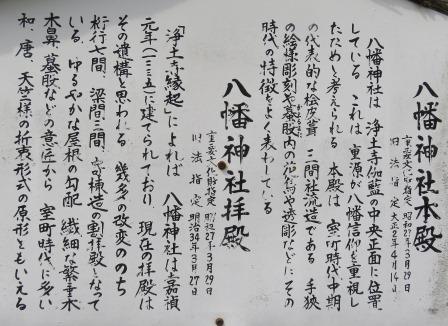 八幡神社本殿
重要文化財指定 昭和27年3月29日
旧法指定 大正2年4月14日
八幡神社は 浄土寺伽藍の中央正面に位置
している これは 重源が八幡信仰を重視し
たためと考えられる 本殿は 室町時代中期
の代表的な桧皮葺 三間社流造である 手狭
の絵様彫刻や蟇股内の 透彫などに その
時代の特徴をよく表わしている
八幡神社拝殿
重要文化財指定 昭和27年3月29日
旧法指定 明治34年3月27日
「浄土寺縁起」によれば 八幡神社は嘉禎
元年(一二三五)に建てられており 現在の拝殿は
その遺構と思われる 幾多の改変ののち
桁行七間、梁間三間、寄棟造の割拝殿となって
いる ゆるやかな屋根の勾配 繊細な繁垂木
木鼻、蟇股などの意匠から 室町時代に多い
和、唐、天竺様の折衷形式の原形ともいえる